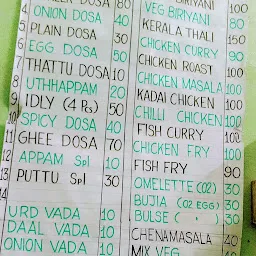 DOSA 80
4 ONION DOSA 40
5 PLAIN DOSA 30
6 EGG DOSA 50
7 THATTU DOSA 10
8 UTHHAPPAM 20
9 IDLY (4 Ps) 50
10 SPICY DOSA 40
11 GHEE DOSA 70
12 APPAM Spl 10
13 PUTTU Spl 30
14
URD VADA 10
DAAL VADA 10
ONION VADA 10
BIRIYANI
VEG BIRIYANI 100
KERALA THALI 80
CHICKEN CURRY 150
CHICKEN ROAST 90
CHICKEN MASALA 100
KADAI CHICKEN 100
CHILLI CHICKEN 100
FISH CURRY 100
CHICKEN FRY 100
FISH FRY 90
OMELETTE (02) 30
BUJIA (02 EGG) 30
BULSE ( ) 30
CHENAMASALA 40
MIX VEG 40